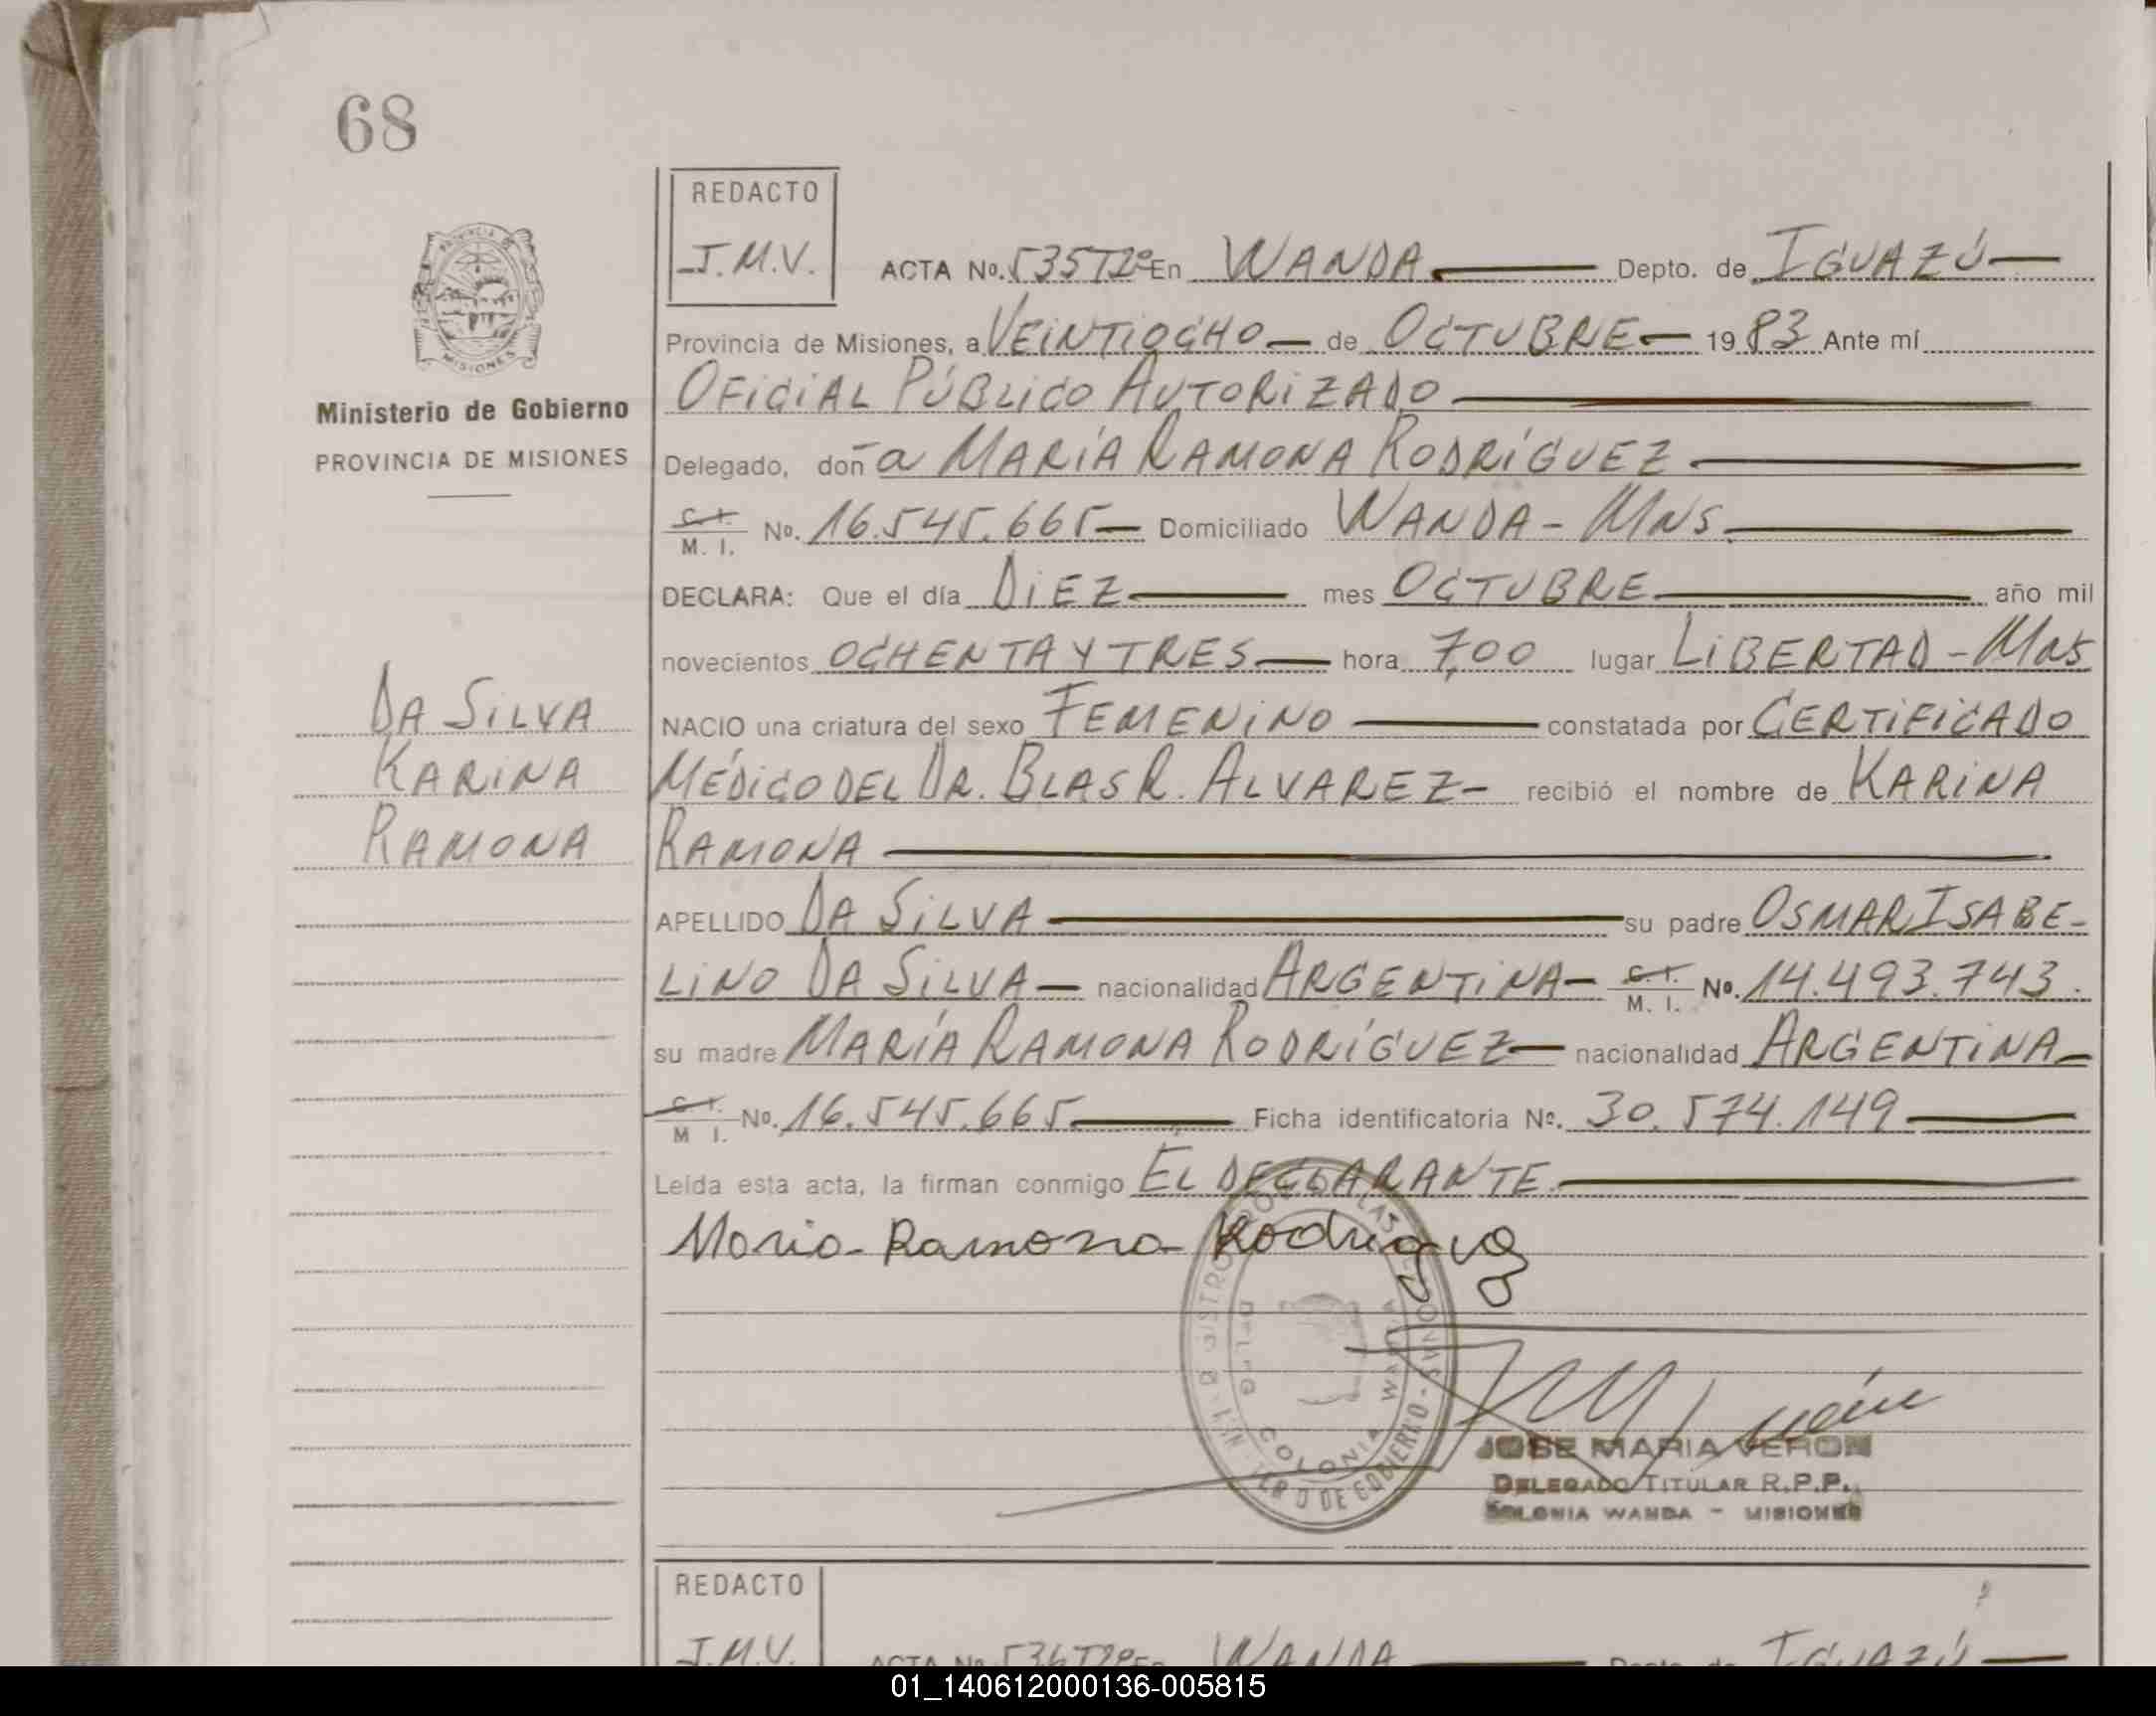 68
REDACTO
J.M.V.
ACTA No. 535T2º En WANDA Depto. de IGUAZÚ
Provincia de Misiones, a VEINTIOCHO de OCTUBRE 1983 Ante mí
OFICIAL PÚBLICO AUTORIZADO
Delegado, doña MARÍA RAMONA RODRÍGUEZ
C. I. M. I. No. 16.545.665 Domiciliado WANDA - MNS.
DECLARA: Que el día DIEZ mes OCTUBRE año mil
novecientos OCHENTA Y TRES hora 7,00 lugar LIBERTAD - MNS
NACIO una criatura del sexo FEMENINO constatada por CERTIFICADO
MÉDICO DEL DR. BLAS R. ALVAREZ- recibió el nombre de KARINA
RAMONA
APELLIDO DA SILVA su padre OSMAR ISABE-
LINO DA SILVA nacionalidad ARGENTINA C. I. M. I. Nº. 14.493.743.
su madre MARÍA RAMONA RODRÍGUEZ nacionalidad ARGENTINA
C. I. M I. No. 16.545.665 Ficha identificatoria Nº. 30.574.149
Leída esta acta, la firman conmigo EL DECLARANTE.
Maria Ramona Rodriguez
JOSE MARIA VERON
DELEGADO TITULAR R.P.P.
COLONIA WANDA - MISIONES
COLONIA WANDA
DE GOBIERNO
PROVINCIA DE
MISIONES
Ministerio de Gobierno
PROVINCIA DE MISIONES
DA SILVA
KARINA
RAMONA
REDACTO
J.M.V.
ACTA No. 536T2º En WANDA Depto. de IGUAZÚ
01_140612000136-005815